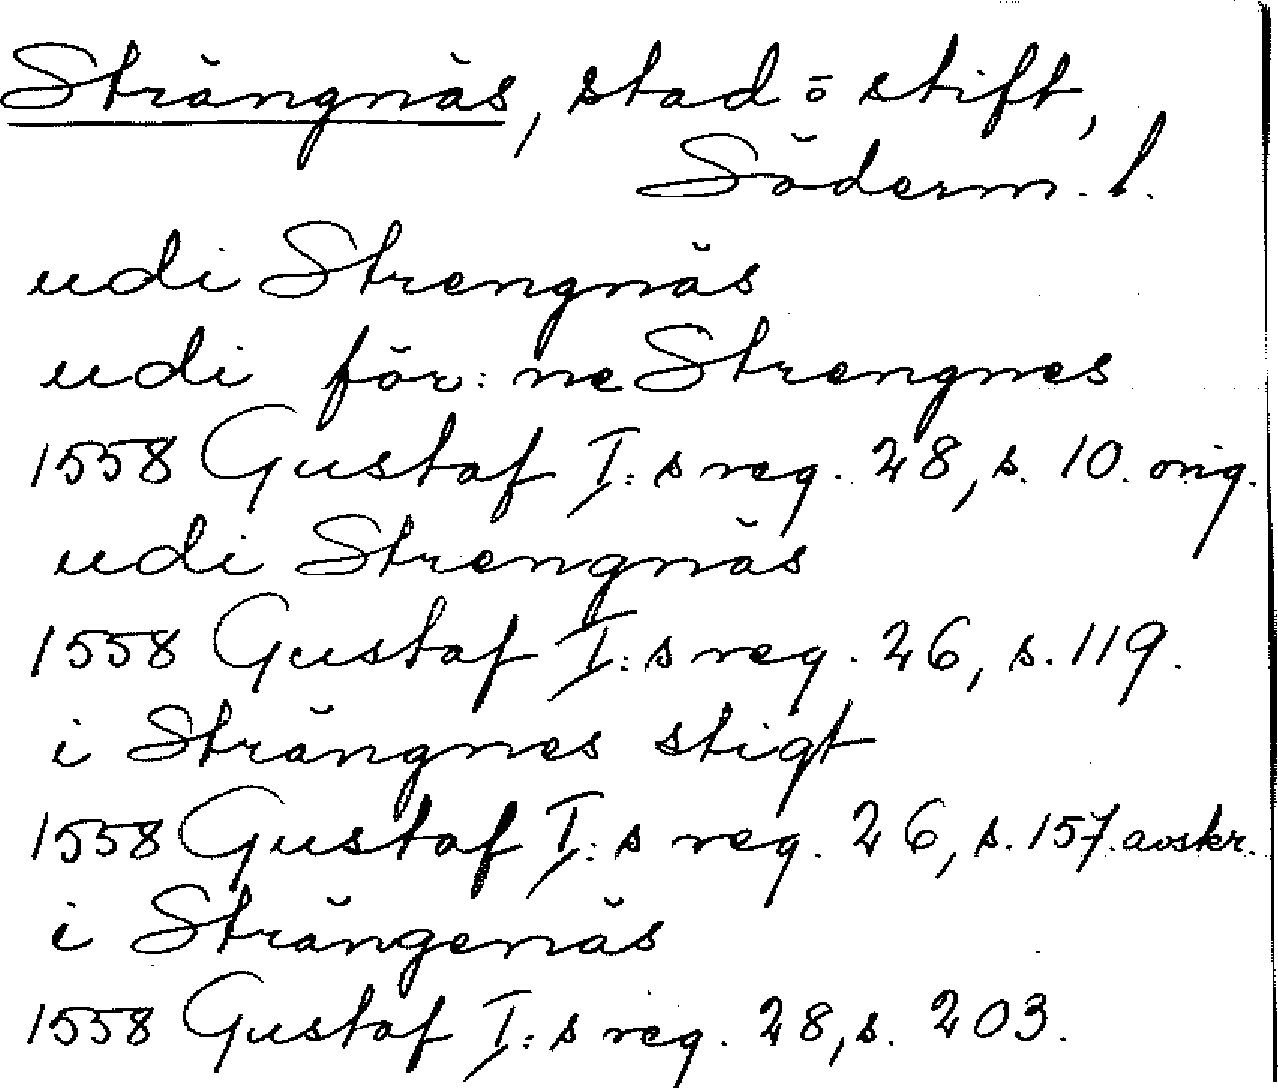 Strängnäs, stad o stift,
Söderm. l.
udi Strengnäs
udi för:ne Strengnes
1558 Gustaf I:s reg. 28, s. 10. orig.
udi Strengnäs
1558 Gustaf I:s reg. 26, s. 119.
i Strängnes stigt
1558 Gustaf I:s reg. 26, s. 157. avskr.
i Strängenäs
1558 Gustaf I:s reg. 28, s. 203.